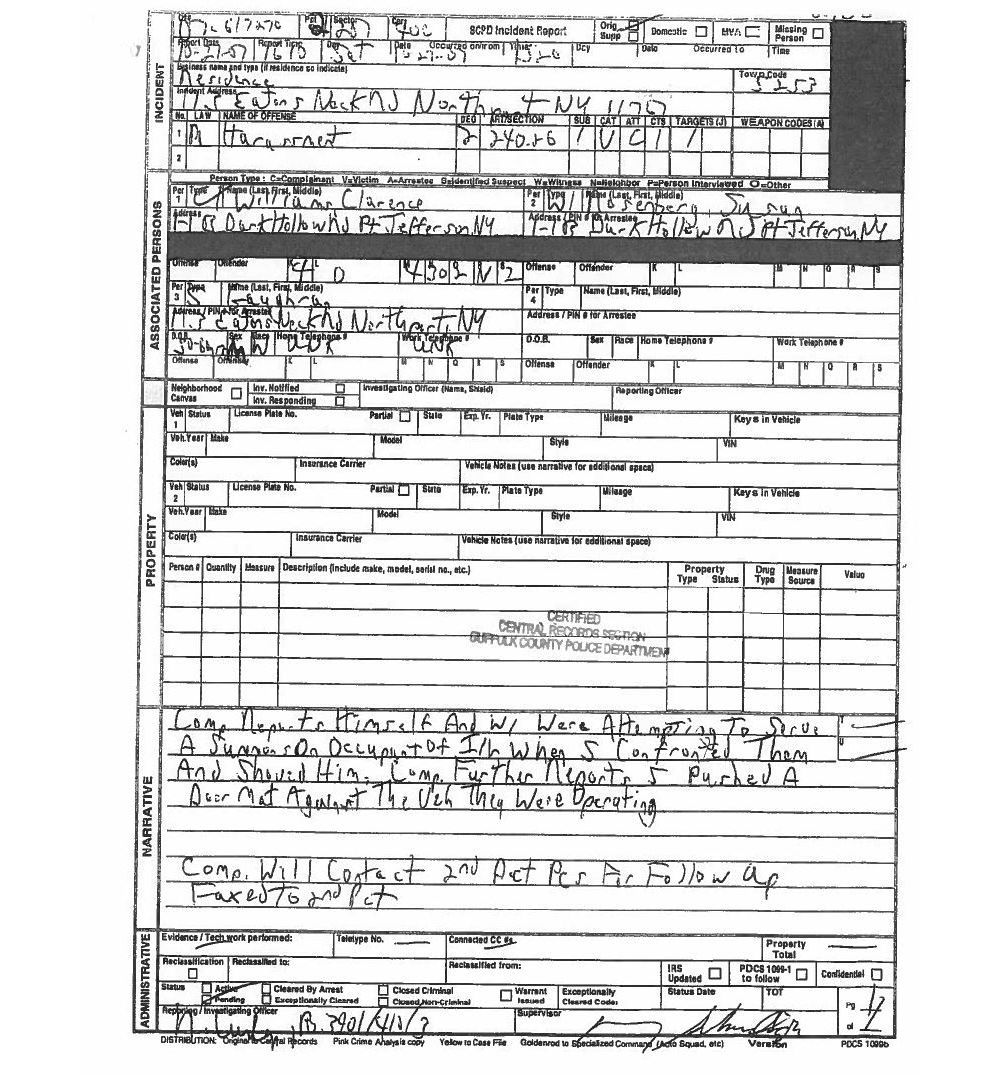 SCPD Incident Report
Orig
Supp
Domestic
MVA
Missing Person
Report Date
Report Time
Day
Date
Occurred on/from
Time
Day
Date
Occurred to
Time
10-21-07
Sat
Business name and type (if residence so indicate)
Town Code
Residence
5253
Incident Address
Eatons Neck Rd
NY
INCIDENT
No. LAW NAME OF OFFENSE DEG ART/SECTION SUB CAT ATT CTS TARGETS (J) WEAPON CODES (A)
1 Harassment 2 240.26 1 V C 1 1
2
Person Type: C=Complainant V=Victim A=Arrestee S=Identified Suspect W=Witness N=Neighbor P=Person Interviewed O=Other
ASSOCIATED PERSONS
Per 1 Type Name (Last, First, Middle)
Williams Clarence
Per 2 Type Name (Last, First, Middle)
Address
Dark Hollow Rd Pt Jefferson, NY
Address / PIN # for Arrestee
Dark Hollow Rd Pt Jefferson, NY
Offense Offender K L
Offense Offender K L M N Q R S
Per 3 Type Name (Last, First, Middle)
S
Per 4 Type Name (Last, First, Middle)
Address / PIN # for Arrestee
Eatons Neck Rd Northport, NY
Address / PIN # for Arrestee
D.O.B. Sex Race Home Telephone # Work Telephone #
M W UNK UNK
D.O.B. Sex Race Home Telephone # Work Telephone #
Offense Offender K L M N Q R S
Offense Offender K L M N Q R S
Neighborhood Canvas
Inv. Notified
Inv. Responding
Investigating Officer (Name, Shield)
Reporting Officer
PROPERTY
Veh 1 Status License Plate No. Partial State Exp. Yr. Plate Type Mileage Keys in Vehicle
Veh.Year Make Model Style VIN
Color(s) Insurance Carrier Vehicle Notes (use narrative for additional space)
Veh 2 Status License Plate No. Partial State Exp. Yr. Plate Type Mileage Keys in Vehicle
Veh.Year Make Model Style VIN
Color(s) Insurance Carrier Vehicle Notes (use narrative for additional space)
Person # Quantity Measure Description (include make, model, serial no., etc.) Property Type Status Drug Type Measure Source Value
CERTIFIED
CENTRAL RECORDS SECTION
SUFFOLK COUNTY POLICE DEPARTMENT
NARRATIVE
Comp. Reports Himself And W1 Were Attempting To Serve
A Summons On Occupant Of I/L When S Confronted Them
And Shoved Him. Comp. Further Reports S Pushed A
Door Mat Against The Veh They Were Operating
Comp. Will Contact 2nd Pct Pcs For Follow Up
Faxed To 2nd Pct
ADMINISTRATIVE
Evidence / Tech work performed: Teletype No. Connected CC #s Property Total
Reclassification Reclassified to: Reclassified from: IRS Updated PDCS 1099-1 to follow Confidential
Status Active Pending Cleared By Arrest Exceptionally Cleared Closed Criminal Closed, Non-Criminal Warrant Issued Exceptionally Cleared Code: Status Date TOT Pg 1 of 1
Reporting / Investigating Officer Supervisor
DISTRIBUTION: Original to Central Records Pink Crime Analysis copy Yellow to Case File Goldenrod to Specialized Command (Auto Squad, etc) Version PDCS 1099b